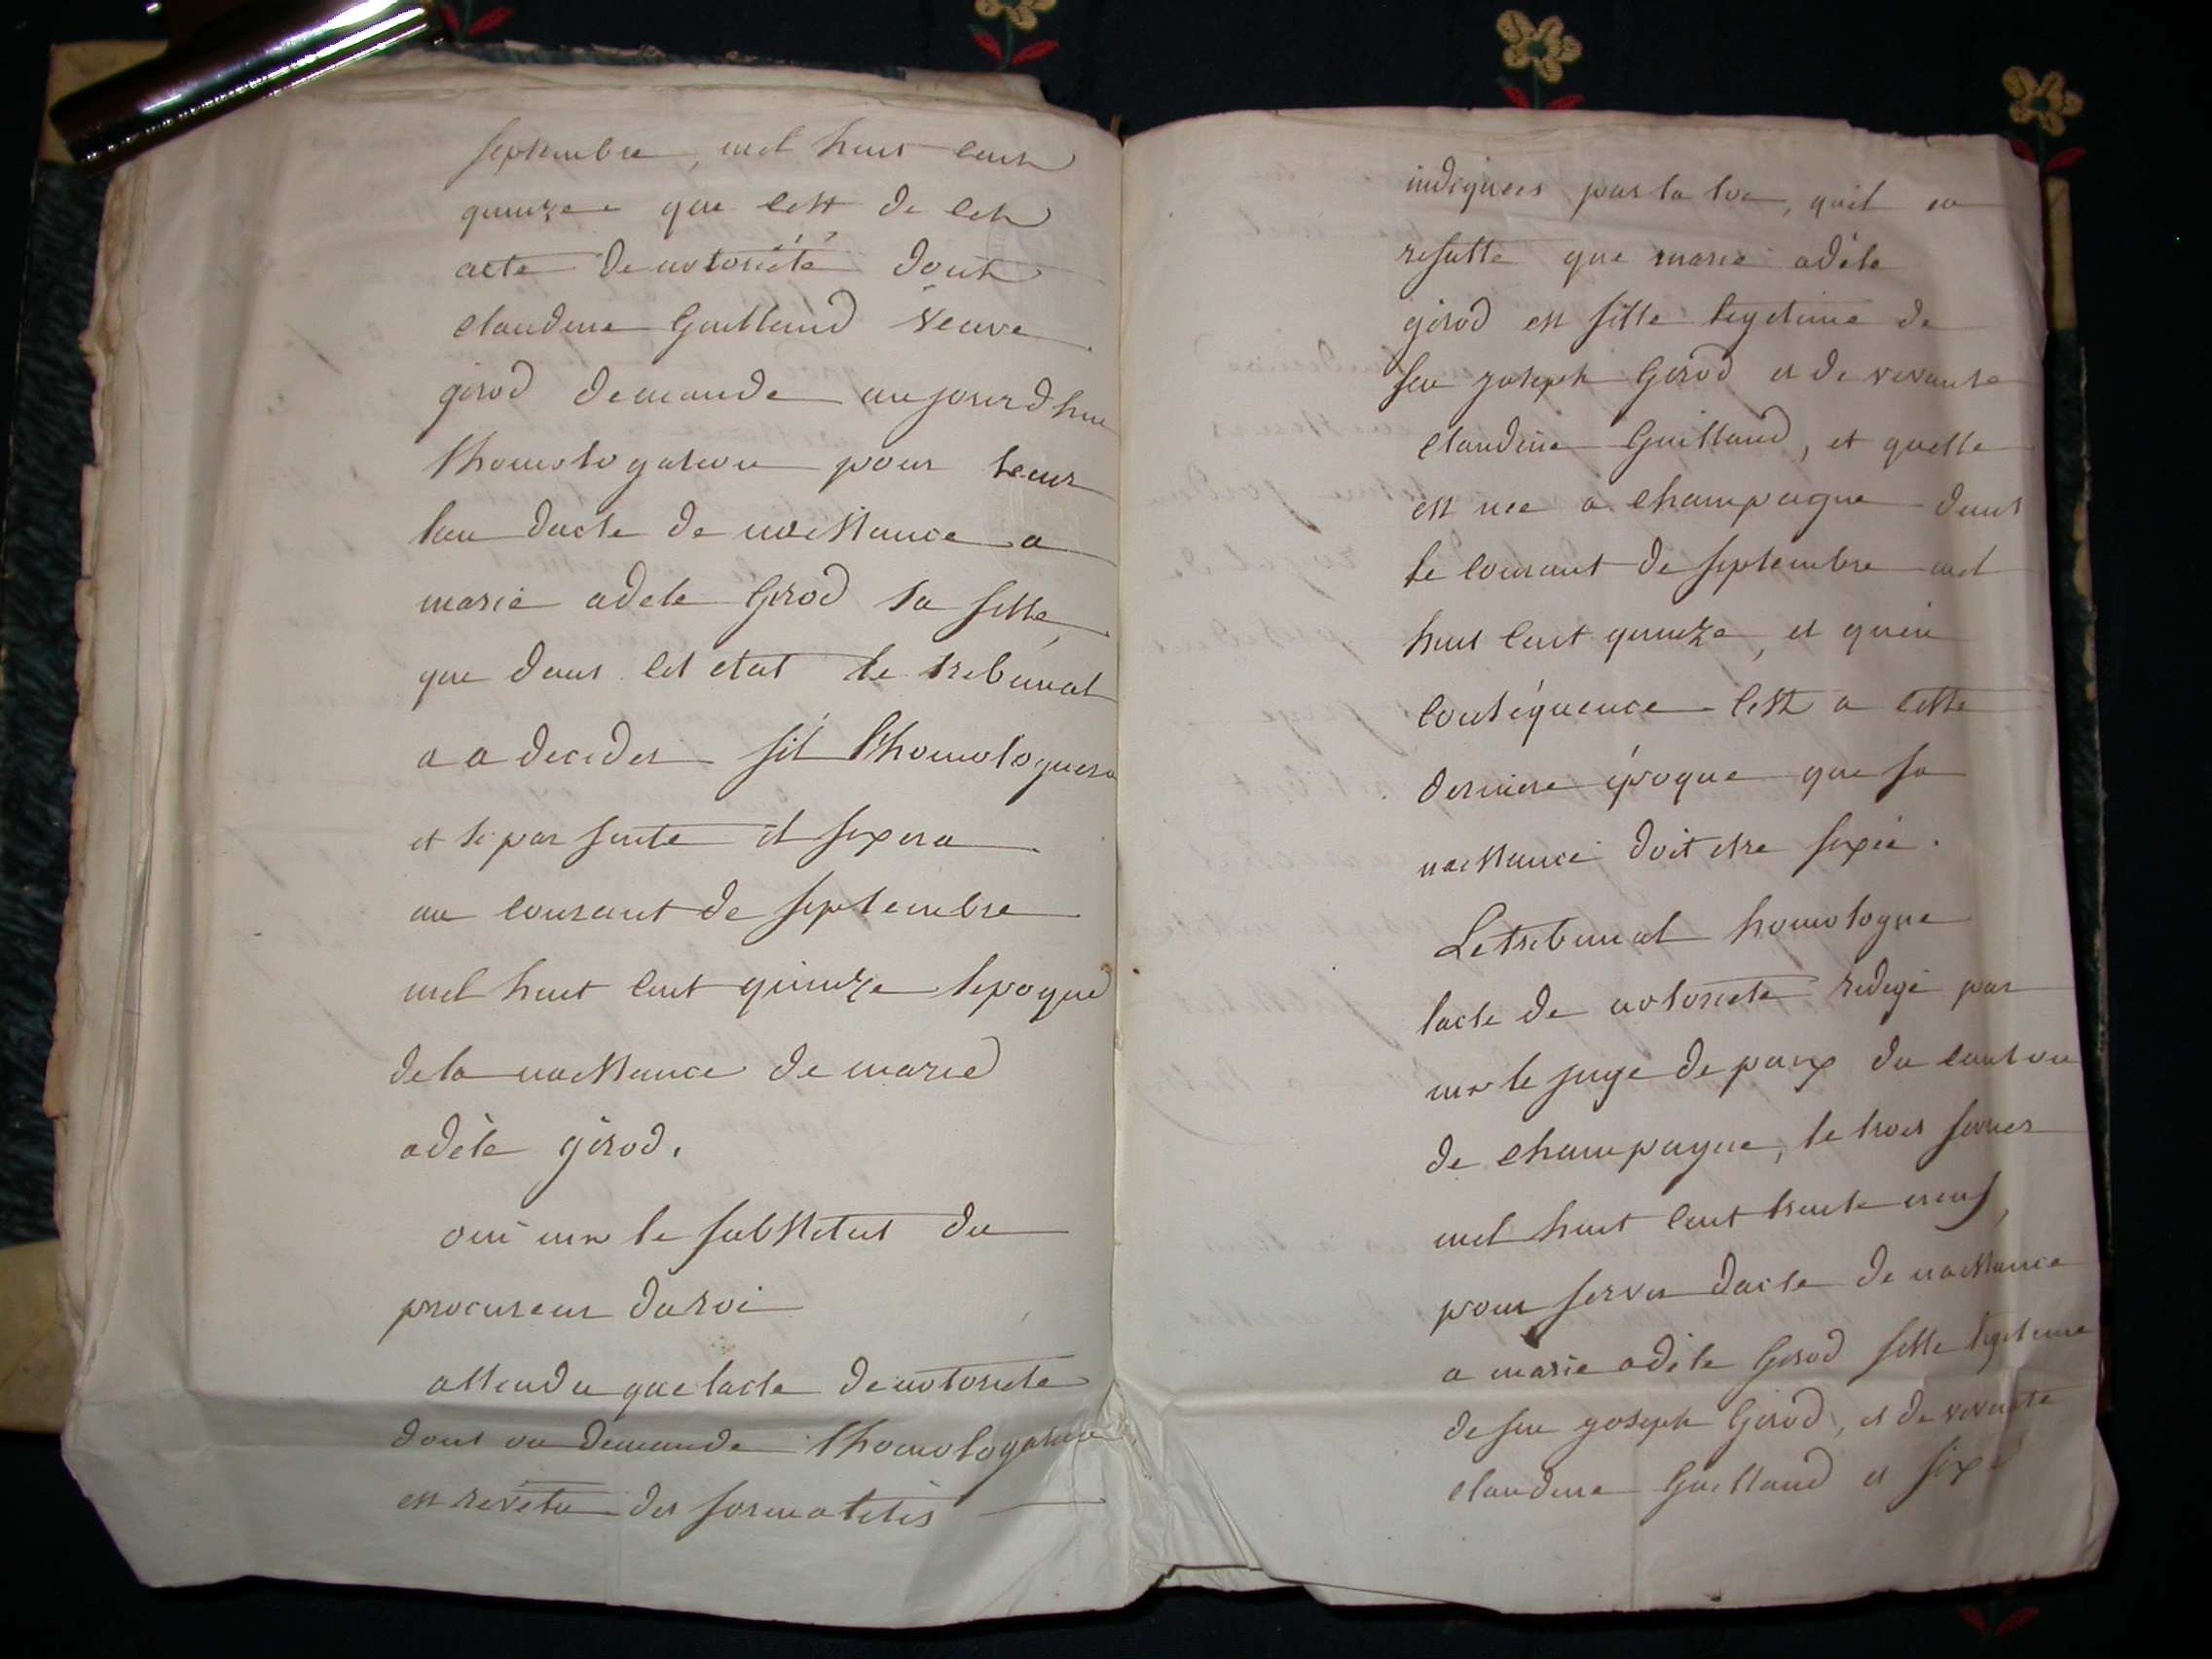 septembre, mil huit cent
quinze que cest de cet
acte de notoriété dont
claudine Guilland veuve
girod demande aujourdhui
lhomologation pour tenir
lieu dacte de naissance a
marie adele Girod sa fille,
que dans cet etat le tribunal
a a decider sil l'homologuera
et si par suite il fixera
au courant de septembre
mil huit cent quinze lepoque
dela naissance de marie
adèle girod.
oui mr le substitut du
procureur du roi
attendu que lacte de notoriete
dont on demande lhomologation
est revetu des formalités
indiquées par la loi, quil en
resulte que marie adèle
girod est fille legitime de
feu joseph Girod et de vivante
claudine Guilland, et quelle
est nee a champagne dans
le courant de septembre mil
huit cent quinze, et quen
conséquence cest a cette
derniere époque que sa
naissance doit etre fixée.
Le tribunal homologue
lacte de notoriete redigé par
mr le juge de paix du canton
de champagne, le trois fevrier
mil huit cent trente neuf,
pour servir dacte de naissance
a marie adèle Girod fille legitime
de feu joseph Girod, et de vivante
claudine Guilland et fixe